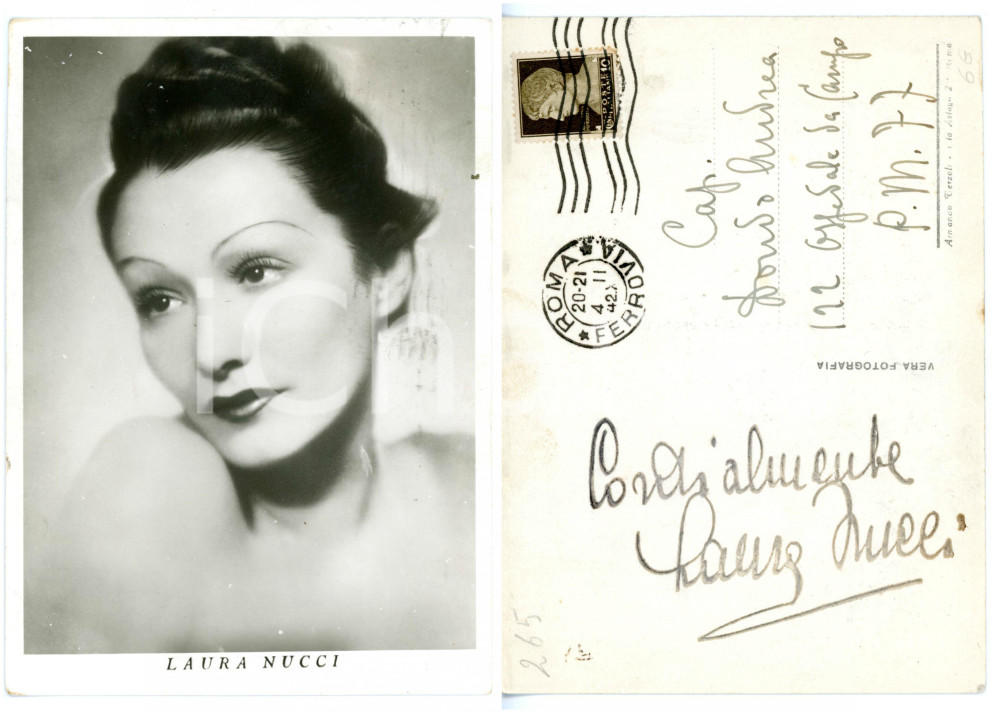 LAURA NUCCI
POSTE
ITALIANE
10
ROMA
FERROVIA
20-21
4 11
42.XXI
Cap.
Andrea
122 Ospedale da Campo
P.M. 77
VERA FOTOGRAFIA
66
Cordialmente
Laura Nucci
265
ich